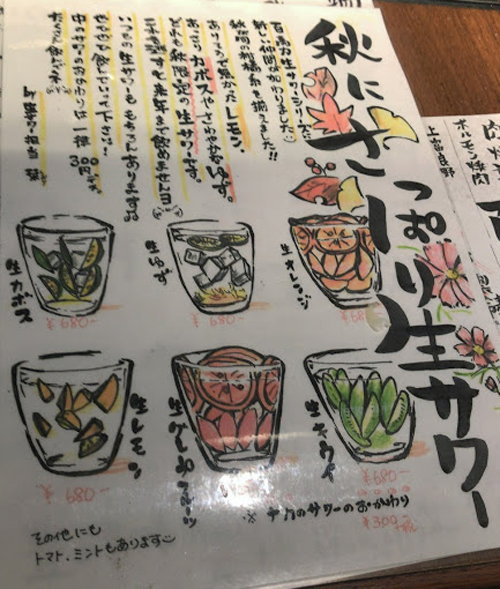 秋にさっぱり生サワー
百馬力生サワーシリーズに
新しい仲間が加わりました:)
秋が旬の柑橘系を揃えました!!
ありそで無かったレモン。
あっさりカボスやさわやかなゆず。
どれも秋限定の生サワーです。
これ逃すと来年まで飲めませんヨ
いつもの生サワーももちろんあります
中のサワーのおかわりは一杯300円です
生オレンジ
¥680-
生ゆず
¥680-
生カボス
¥680-
生キウイ
¥680-
生グレープフルーツ
生レモン
¥680-
※中身のサワーのおかわり
¥300-
その他にも
トマト、ミントもあります
上富良野
ホルモン焼肉